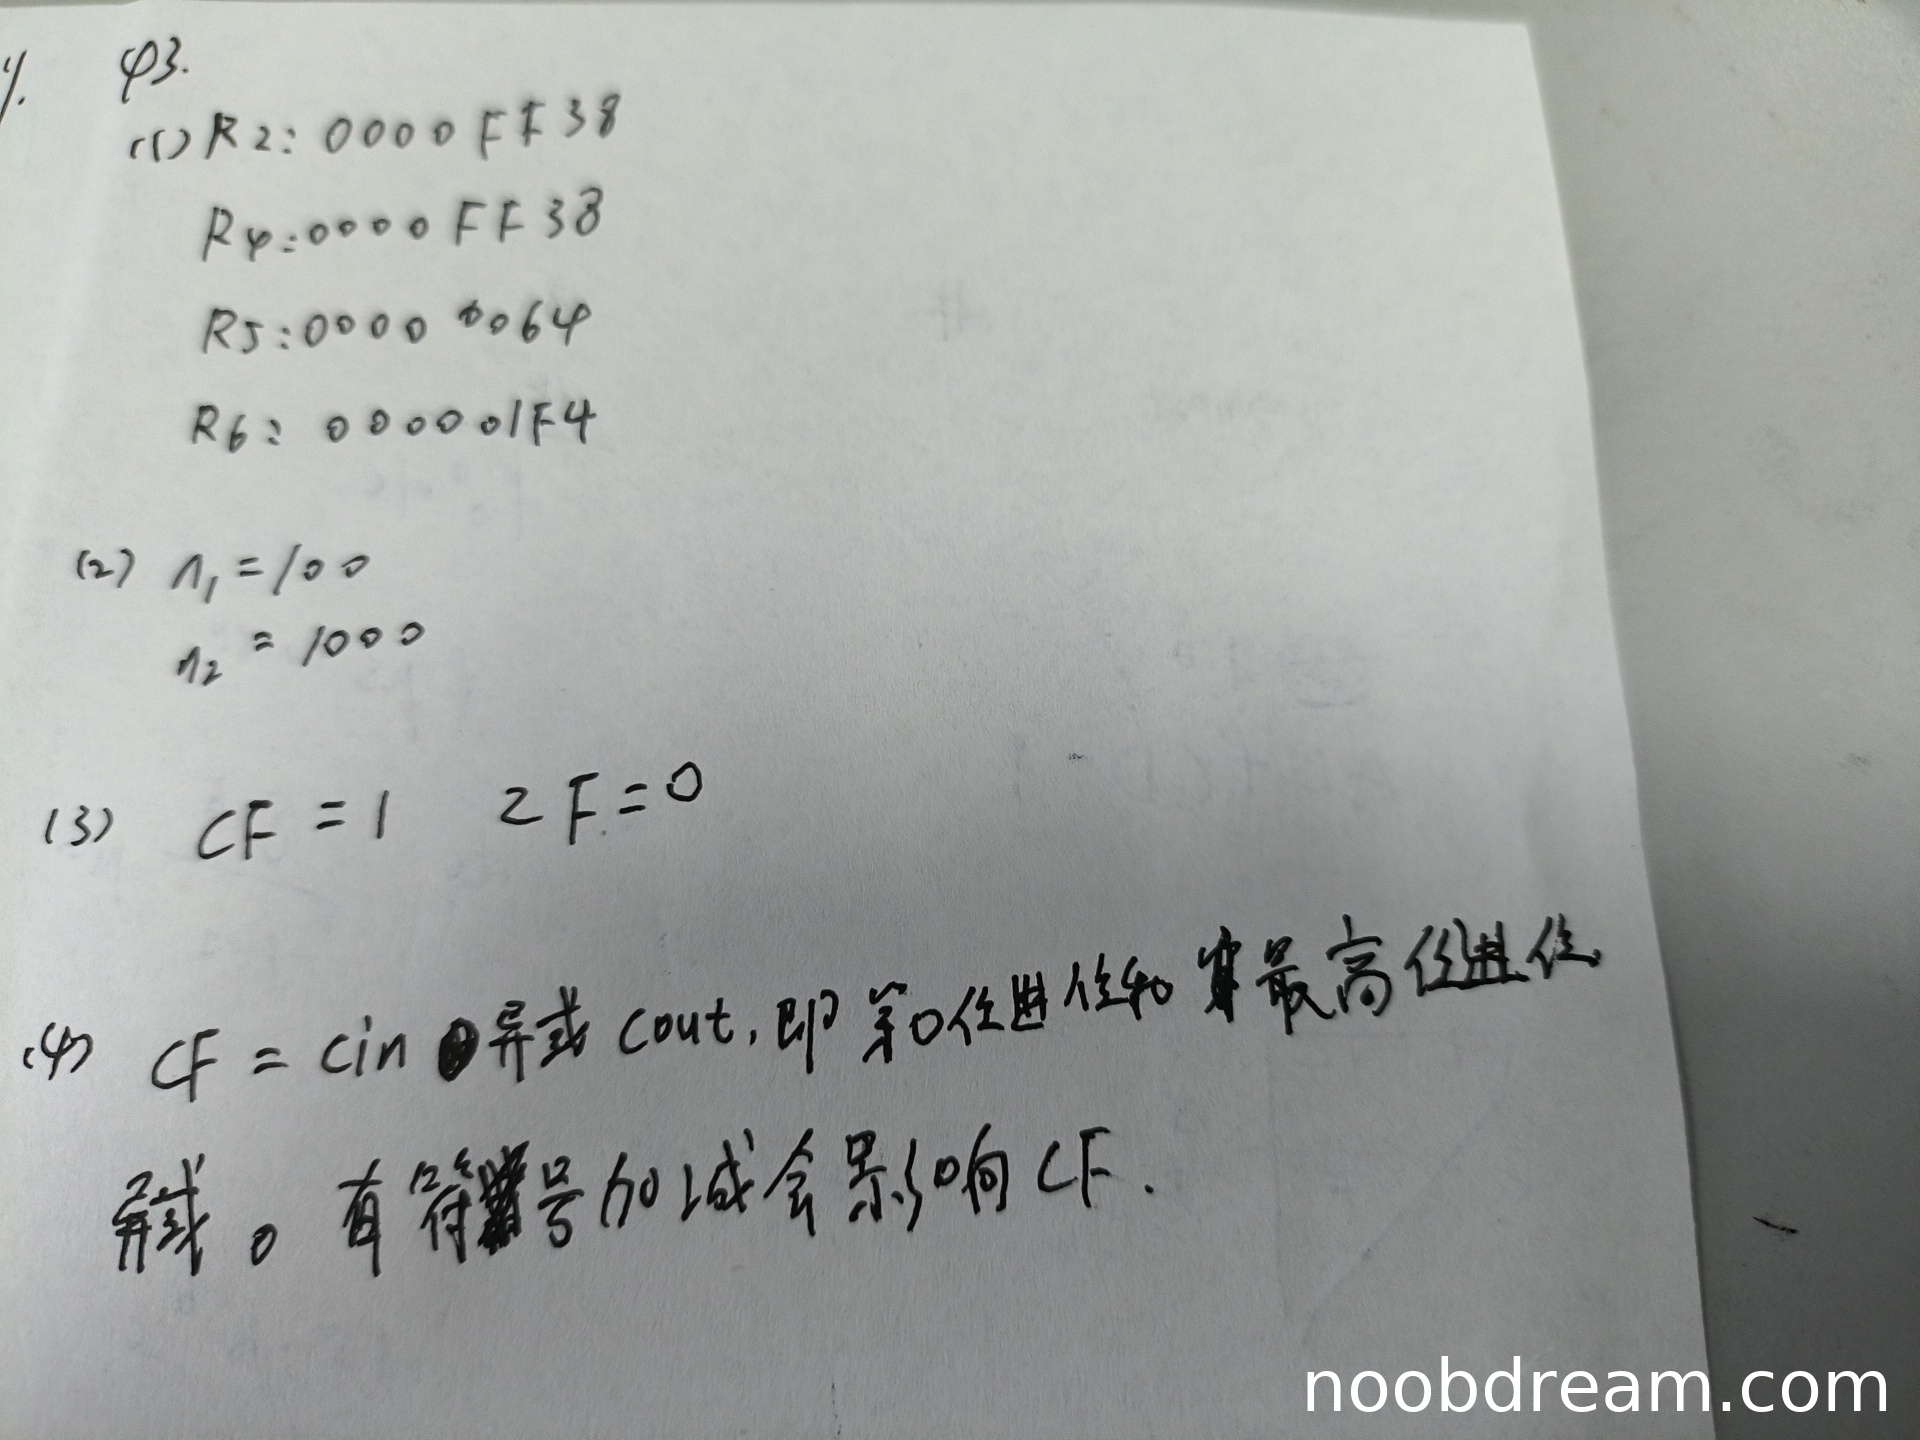 43.
(1) R2: 0000FF38
R4: 0000FF38
R5: 0000 0064
R6: 000001F4
(2) n1 = 100
n2 = 1000
(3) CF = 1 ZF = 0
(4) CF = cin 异或 cout, 即第0位进位和最高位进位
异或。有符号加减会影响CF.
noobdream.com